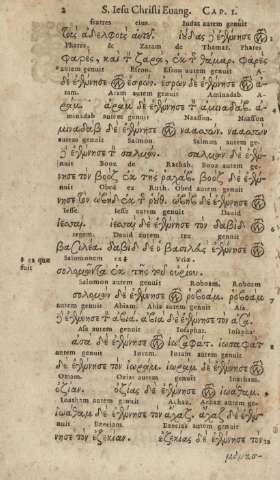 2 S. Iesu Christi Euang. CAP. I.
fratres eius. Iudas autem genuit
τοὺς ἀδελφοὺς αὐτοῦ. ἰούδας δὲ ἐγέννησε τὸν
Phares & Zaram de Thamar. Phares
φαρὲς, καὶ τὸν ζαρὰ, ἐκ τῆς θάμαρ. φαρὲς
autem genuit Esrom. Esrom autem genuit A-
δὲ ἐγέννησε τὸν ἐσρώμ. ἐσρὼμ δὲ ἐγέννησε τὸν ἀ-
ram. Aram autem genuit Aminadab. A-
ράμ. ἀρὰμ δὲ ἐγέννησε τὸν ἀμιναδάβ. ἀ-
minadab autem genuit Naasson. Naasson
μιναδὰβ δὲ ἐγέννησε τὸν ναασσών. ναασσὼν
autem genuit Salmon. Salmon autem ge-
δὲ ἐγέννησε τὸν σαλμών. σαλμὼν δὲ ἐγέν-
nuit Booz de Rachab. Booz autem ge-
νησε τὸν βοὸζ ἐκ τῆς ραχάβ. βοὸζ δὲ ἐγέν-
nuit Obed ex Ruth. Obed autem genuit
νησε τὸν ὠβὴδ ἐκ τῆς ῥούθ. ὠβὴδ δὲ ἐγέννησε τὸν
Iesse. Iesse autem genuit Dauid
ἰεσσαί. ἰεσσαὶ δὲ ἐγέννησε τὸν δαβὶδ τὸν
regem. Dauid autem rex genuit
βασιλέα. δαβὶδ δὲ ὁ βασιλεὺς ἐγέννησε τὸν
ex que fuit
Salomonem ex Vriæ.
σολομῶντα ἐκ τῆς τοῦ οὐρίου.
Salomon autem genuit Roboam. Roboam
σολομὼν δὲ ἐγέννησε τὸν ῥοβοάμ. ῥοβοὰμ
autem genuit Abiam. Abia autem genuit Asa.
δὲ ἐγέννησε τὸν ἀβιά. ἀβιὰ δὲ ἐγέννησε τὸν ἀσά.
Asa autem genuit Iosaphat. Iosaphat
ἀσὰ δὲ ἐγέννησε τὸν ἰωσαφάτ. ἰωσαφὰτ
autem genuit Ioram. Ioram autem genuit
δὲ ἐγέννησε τὸν ἰωράμ. ἰωρὰμ δὲ ἐγέννησε τὸν
Oziam. Ozias autem genuit Ioatham.
ὀζίαν. ὀζίας δὲ ἐγέννησε τὸν ἰωάθαμ.
Ioatham autem genuit Achaz. Achaz autem ge-
ἰωάθαμ δὲ ἐγέννησε τὸν ἄχαζ. ἄχαζ δὲ ἐγέν-
nuit Ezeciam. Ezecias autem genuit
νησε τὸν ἐζεκίαν. ἐζεκίας δὲ ἐγέννησε τὸν
μανασ-